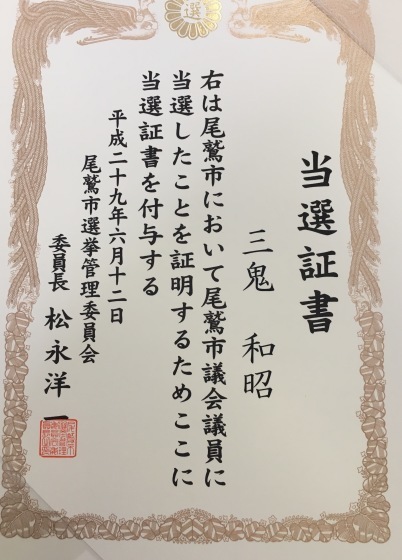 当選証書
三鬼 和昭
右は尾鷲市において尾鷲市議会議員に
当選したことを証明するためここに
当選証書を付与する
平成二十九年六月十二日
尾鷲市選挙管理委員会
委員長 松永洋一
選